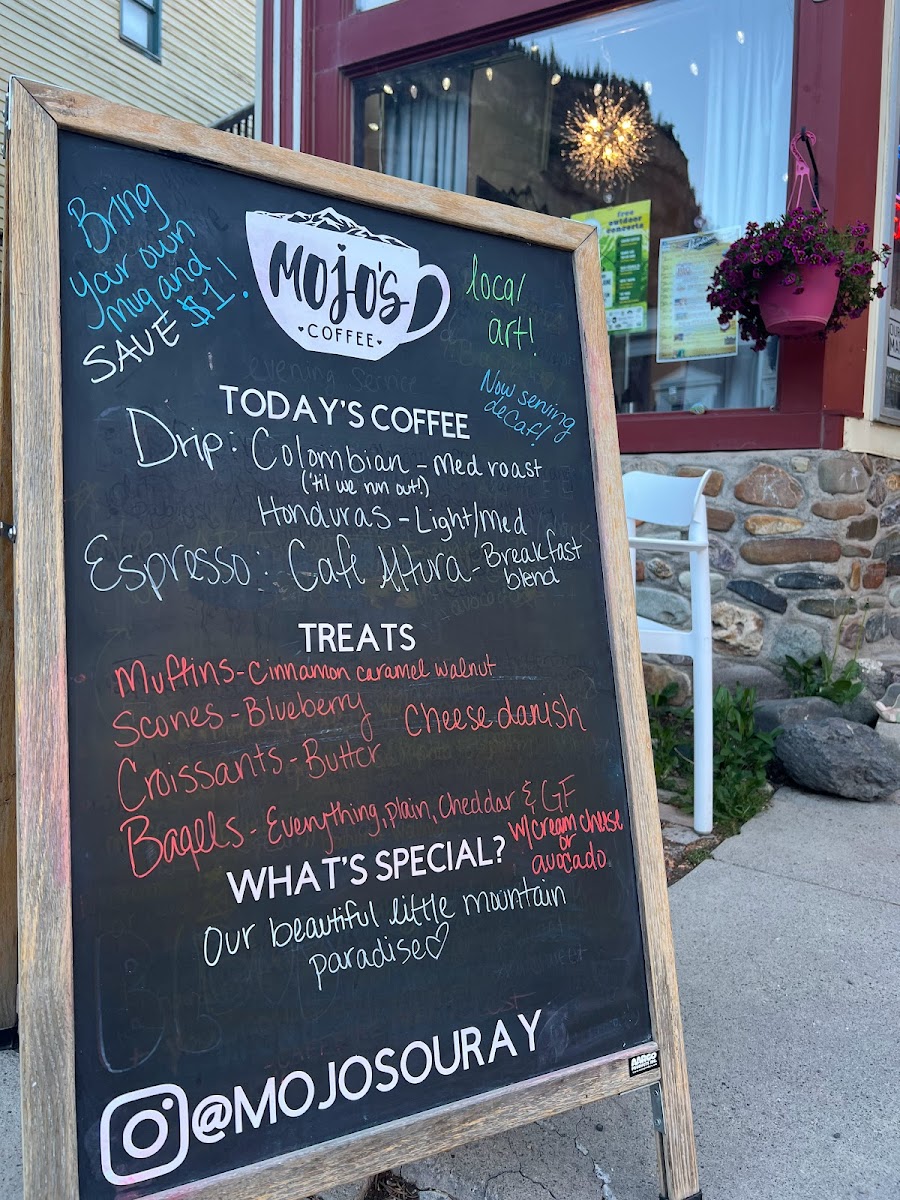 Bring
your own
mug and
SAVE $1!
MOJO'S
COFFEE
local
art!
Now serving
decaf!
TODAY'S COFFEE
Drip: Colombian - Med roast
('til we run out!)
Honduras - Light/Med
Espresso: Cafe Altura - Breakfast
blend
TREATS
Muffins - Cinnamon caramel walnut
Scones - Blueberry
Cheese danish
Croissants - Butter
Bagels - Everything, plain, Cheddar & GF
w/cream cheese
or
avocado
WHAT'S SPECIAL?
Our beautiful little mountain
paradise♡
@MOJOSOURAY
AARCO
free
outdoor
concerts